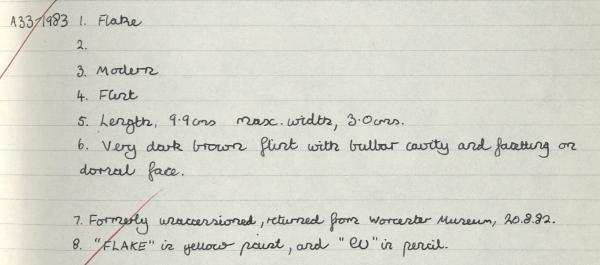 A33-1983 1. Flake
2.
3. Modern
4. Flint
5. Length, 9.9cms max. width, 3.0cms.
6. Very dark brown flint with bulbar cavity and facetting on
dorsal face.
7. Formerly unaccessioned, returned from Worcester Museum, 20.8.82.
8. "FLAKE" in yellow paint, and "EU" in pencil.